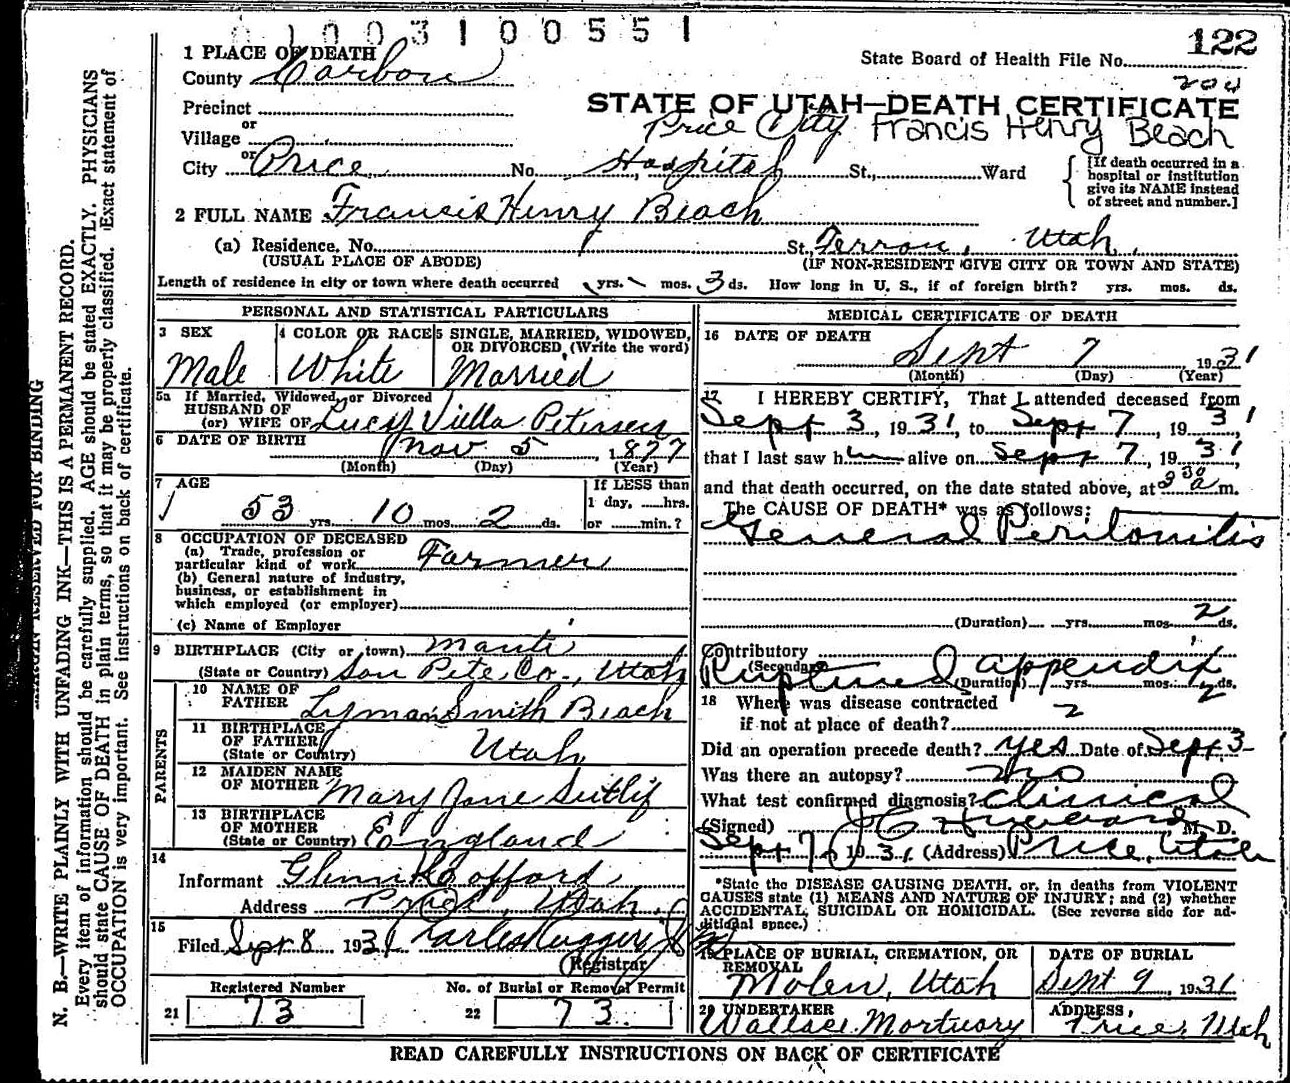 1003100551
122
State Board of Health File No.
204
STATE OF UTAH—DEATH CERTIFICATE
Francis Henry Beach
1 PLACE OF DEATH
County Carbon
Precinct
or
Village
or
City Price No. Price City Hospital St., Ward
[If death occurred in a hospital or institution give its NAME instead of street and number.]
2 FULL NAME Francis Henry Beach
(a) Residence. No. St. Ferron, Utah.
(USUAL PLACE OF ABODE) (IF NON-RESIDENT GIVE CITY OR TOWN AND STATE)
Length of residence in city or town where death occurred yrs. mos. 3 ds. How long in U. S., if of foreign birth? yrs. mos. ds.
PERSONAL AND STATISTICAL PARTICULARS
3 SEX
Male
4 COLOR OR RACE
White
5 SINGLE, MARRIED, WIDOWED, OR DIVORCED, (Write the word)
Married
5a If Married, Widowed, or Divorced
HUSBAND OF
(or) WIFE OF Lucy Viella Petersen
6 DATE OF BIRTH Nov 5, 1877
(Month) (Day) (Year)
7 AGE
53 yrs. 10 mos. 2 ds.
If LESS than
1 day, hrs.
or min.?
8 OCCUPATION OF DECEASED
(a) Trade, profession or
particular kind of work Farmer
(b) General nature of industry,
business, or establishment in
which employed (or employer)
(c) Name of Employer
9 BIRTHPLACE (City or town) Manti
(State or Country) San Pete Co., Utah
PARENTS
10 NAME OF
FATHER Lyman Smith Beach
11 BIRTHPLACE
OF FATHER
(State or Country) Utah
12 MAIDEN NAME
OF MOTHER Mary Jane Sutlif
13 BIRTHPLACE
OF MOTHER
(State or Country) England
14
Informant Glenn Cofford
Address Price, Utah
15
Filed Sept 8 1931
(Registrar)
Registered Number
21 73
No. of Burial or Removal Permit
22 73
MEDICAL CERTIFICATE OF DEATH
16 DATE OF DEATH
Sept 7 1931
(Month) (Day) (Year)
17 I HEREBY CERTIFY, That I attended deceased from
Sept 3, 1931, to Sept 7, 1931,
that I last saw him alive on Sept 7, 1931,
and that death occurred, on the date stated above, at 3 30 a m.
The CAUSE OF DEATH* was as follows:
General Peritonitis
(Duration) yrs. mos. 2 ds.
Contributory
(Secondary)
Ruptured appendix
(Duration) yrs. mos. 2 ds.
18 Where was disease contracted
if not at place of death? 2
Did an operation precede death? yes Date of Sept. 3
Was there an autopsy? no
What test confirmed diagnosis? Clinical
(Signed) J C Hubbard M. D.
Sept 7 1931 (Address) Price, Utah
*State the DISEASE CAUSING DEATH, or, in deaths from VIOLENT
CAUSES state (1) MEANS AND NATURE OF INJURY; and (2) whether
ACCIDENTAL, SUICIDAL OR HOMICIDAL. (See reverse side for additional space.)
19 PLACE OF BURIAL, CREMATION, OR
REMOVAL
Molen, Utah
DATE OF BURIAL
Sept 9, 1931
20 UNDERTAKER
Wallace Mortuary
ADDRESS,
Price, Utah
READ CAREFULLY INSTRUCTIONS ON BACK OF CERTIFICATE
MARGIN RESERVED FOR BINDING
N. B.—WRITE PLAINLY WITH UNFADING INK—THIS IS A PERMANENT RECORD.
Every item of information should be carefully supplied. AGE should be stated EXACTLY. PHYSICIANS
should state CAUSE OF DEATH in plain terms, so that it may be properly classified. Exact statement of
OCCUPATION is very important. See instructions on back of certificate.